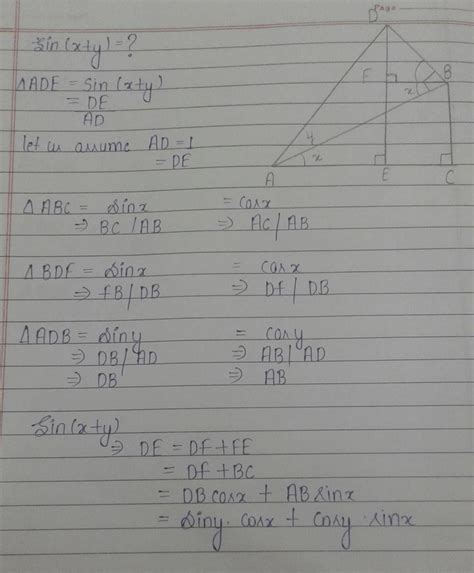 Page
Sin(x+y)=?
△ADE = Sin(x+y)
= DE
AD
let us assume AD=1
= DE
D
F
B
x
y
x
A
E
C
△ABC = sinx = cosx
⇒ BC/AB ⇒ AC/AB
△BDF = sinx = cosx
⇒ fB/DB ⇒ Df/DB
△ADB = siny = cosy
⇒ DB/AD ⇒ AB/AD
⇒ DB ⇒ AB
Sin(x+y)
⇒ DE = DF+FE
= DF+BC
= DBcosx + ABsinx
= siny. cosx + cosy .sinx